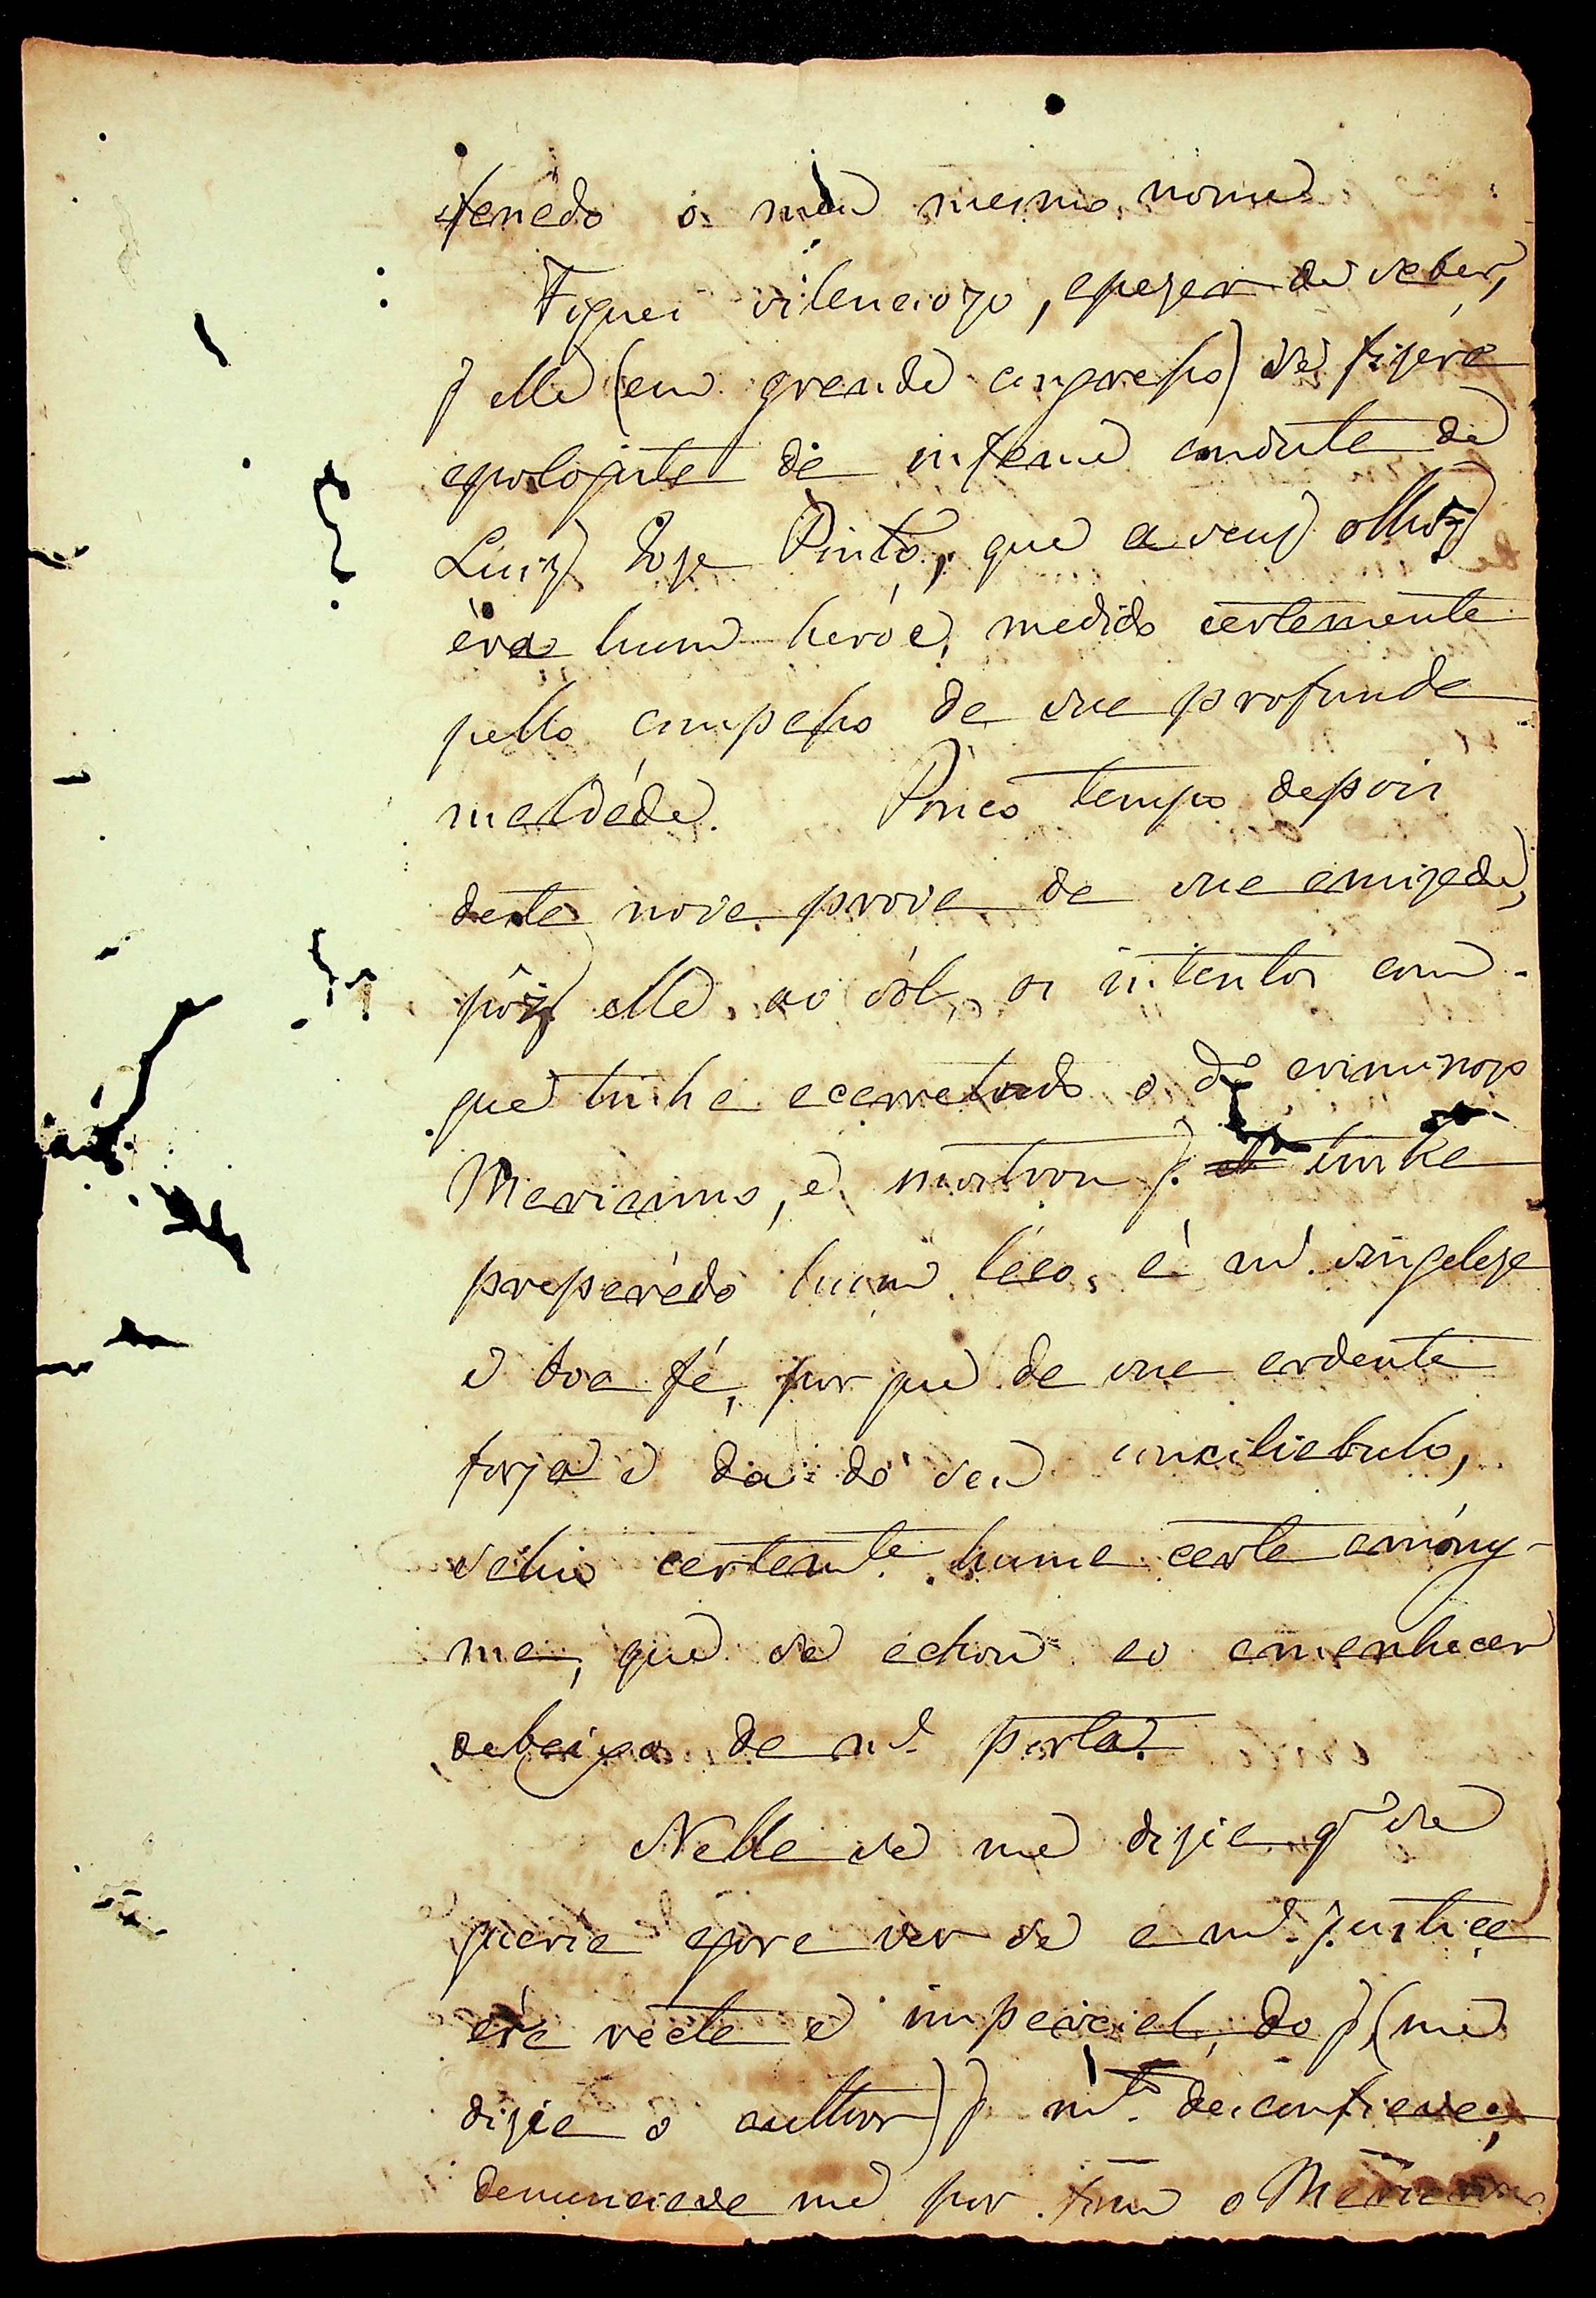 famado o meu mesmo nome
Fiquei silenciozo, apezar de saber,
q̃ elle (em grande congresso) se fizera
apologista da infame conducta de
Luiz Joze Pinto, que a seus olhos
éra hum heróe, medido certamente
pello compasso da sua profunda
maldáde. Pouco tempo depois
desta nova prova de sua amizade,
pôz elle ao sól, os intentos com
que tinha acarretado o d.º criminozo
Marianno, e mostrou q̃ tinha
preparádo hum láço, á m.ª singeleza
e boa fé, por que da sua ardente
forja e da do seu conciliabulo,
sahio certam.te huma carta anóny-
ma, que se achou ao amanhecer
debaixo da m.ª porta.
Nella se me dizia q̃ se
queria agora ver se a m.ª justiça
éra recta e imparcial, do q̃ (me
dizia o author) q̃ m.to desconfiava;
denunciava me por fim o Marianno